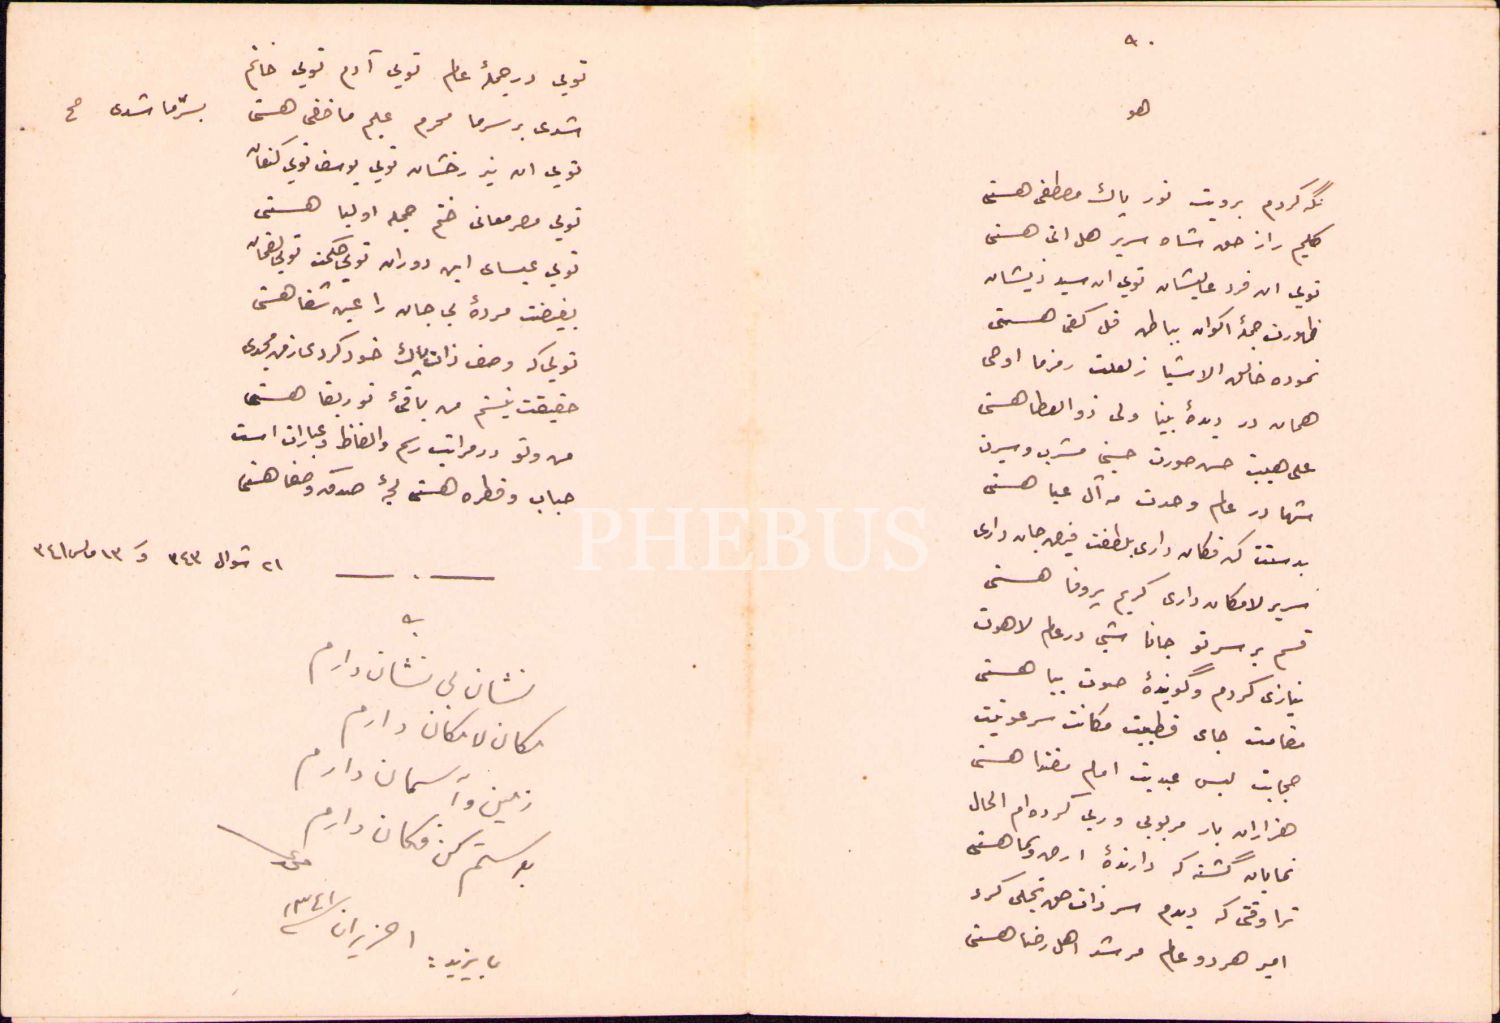 هو
نگه کردم برویت نور پاك مصطفی هستی
کلیم راز حق شاه سریر هل اتی هستی
تویی ان فرد عالیشان تویی ان سید ذیشان
ظهورت جملهٔ اکوان بباطن قل کفی هستی
نموده خالق الاشیا ز لعلت رمز ما اوحی
همان در دیدهٔ بینا ولی ذو العطا هستی
علی هیبت حسن صورت حسینی مشرب و سیرت
شها در عالم وحدت مه آل عبا هستی
بدستت کن فکان داری بلطفت فیض جان داری
سریر لامکان داری کریم پروفا هستی
قسم بر سر تو جانا شبی در عالم لاهوت
نیازی کردم و گویندهٔ صوت بیا هستی
مقامت جای قطبیت مکانت سر غوثیت
حجابت لبس عبدیت امام مقتدا هستی
هزاران بار مربوبی و ربی کرده ام الحال
نمایان گشته که دارندهٔ ارض و سما هستی
ترا وقتی که دیدم سر ذات حق تجلی کرد
امیر هر دو عالم مرشد اهل رضا هستی
تویی در جملهٔ عالم تویی آدم تویی خاتم
شدی بر سر ما محرم علیم ما خفی هستی
بسرّ ما شدی صح
تویی ان نیر رخشان تویی یوسف تویی کنعان
تویی مصر معانی ختم جمله اولیا هستی
تویی عیسای این دوران تویی حکمت تویی لقمان
بفیضت مردهٔ بی جان را عین شفا هستی
تویی که وصف ذات پاك خود کردی از من مجدی
حقیقت نیستم من باقیٔ نور بقا هستی
من و تو در مراتب رسم و الفاظ و عبارات است
حباب و قطره هستی لجهٔ صدق و صفا هستی
٢١ شوال ٣٤٣ و ١٣ مایس ٣٤١
نشان بی نشان دارم
مکان لامکان دارم
زمین و آسمان دارم
بدستم کن فکان دارم
بایزید: ١ حزیران ١٣٤١
PHEBUS